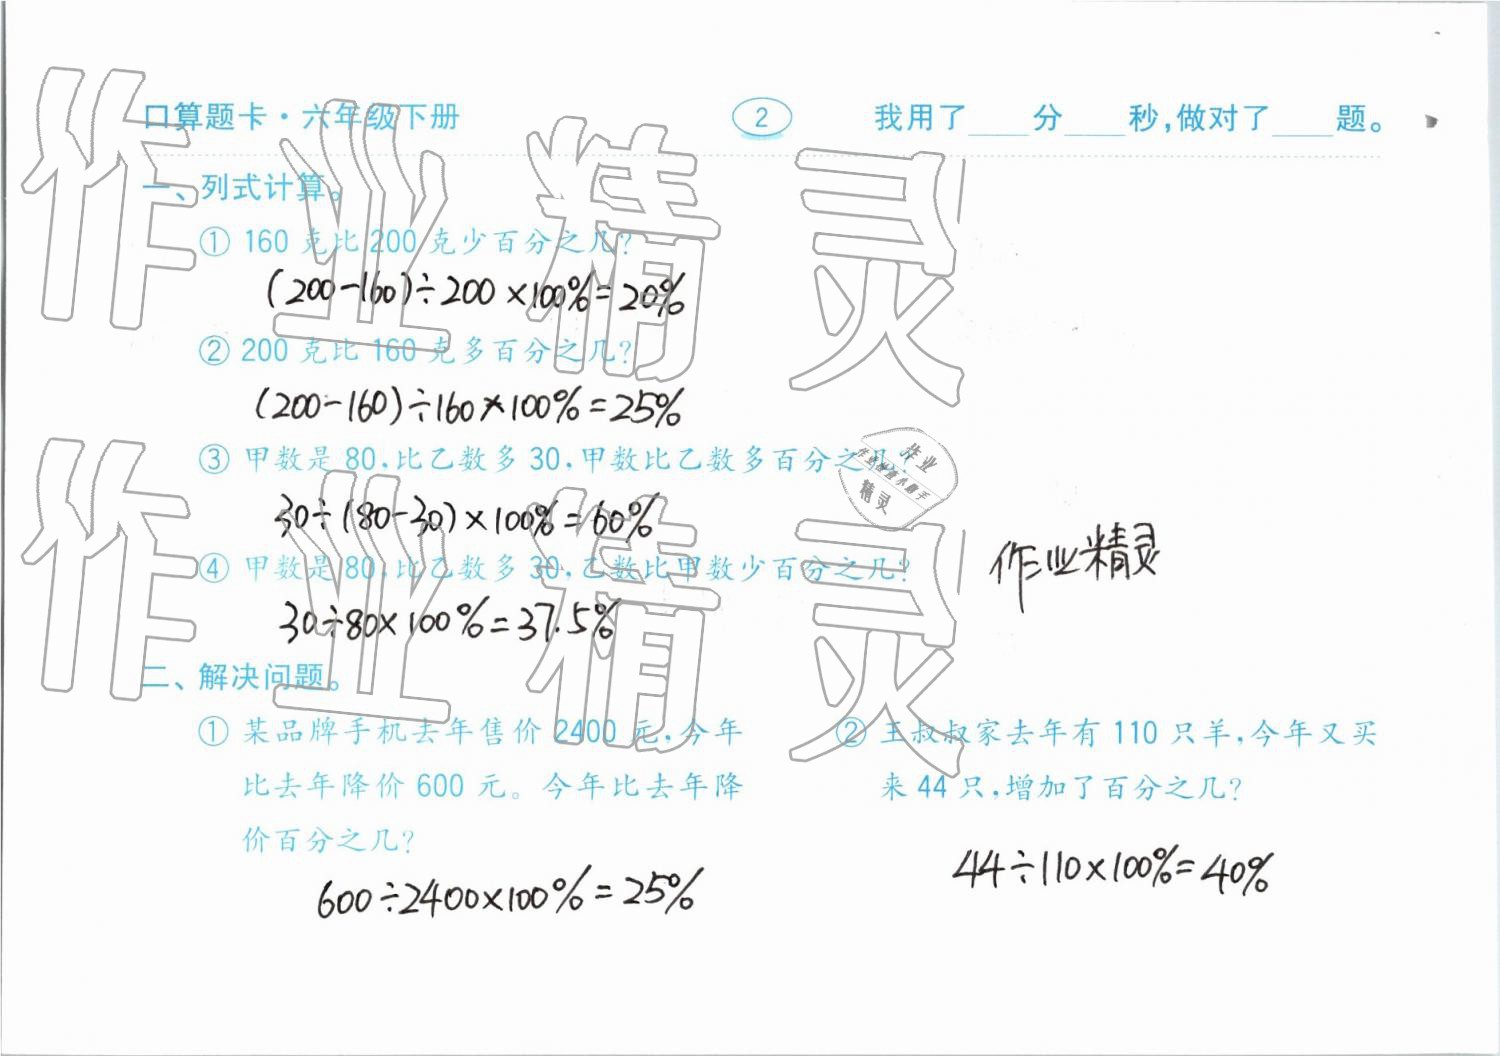 口算题卡·六年级下册 2 我用了____分____秒,做对了____题。
一、列式计算。
① 160 克比 200 克少百分之几?
(200-160)÷200×100%=20%
② 200 克比 160 克多百分之几?
(200-160)÷160×100%=25%
③ 甲数是 80,比乙数多 30,甲数比乙数多百分之几?
30÷(80-30)×100%=60%
④ 甲数是 80,比乙数多 30,乙数比甲数少百分之几?
30÷80×100%=37.5%
二、解决问题。
① 某品牌手机去年售价 2400 元,今年
比去年降价 600 元。今年比去年降
价百分之几?
600÷2400×100%=25%
② 王叔叔家去年有 110 只羊,今年又买
来 44 只,增加了百分之几?
44÷110×100%=40%
作业精灵
作业精灵
作业精灵
作业
精灵